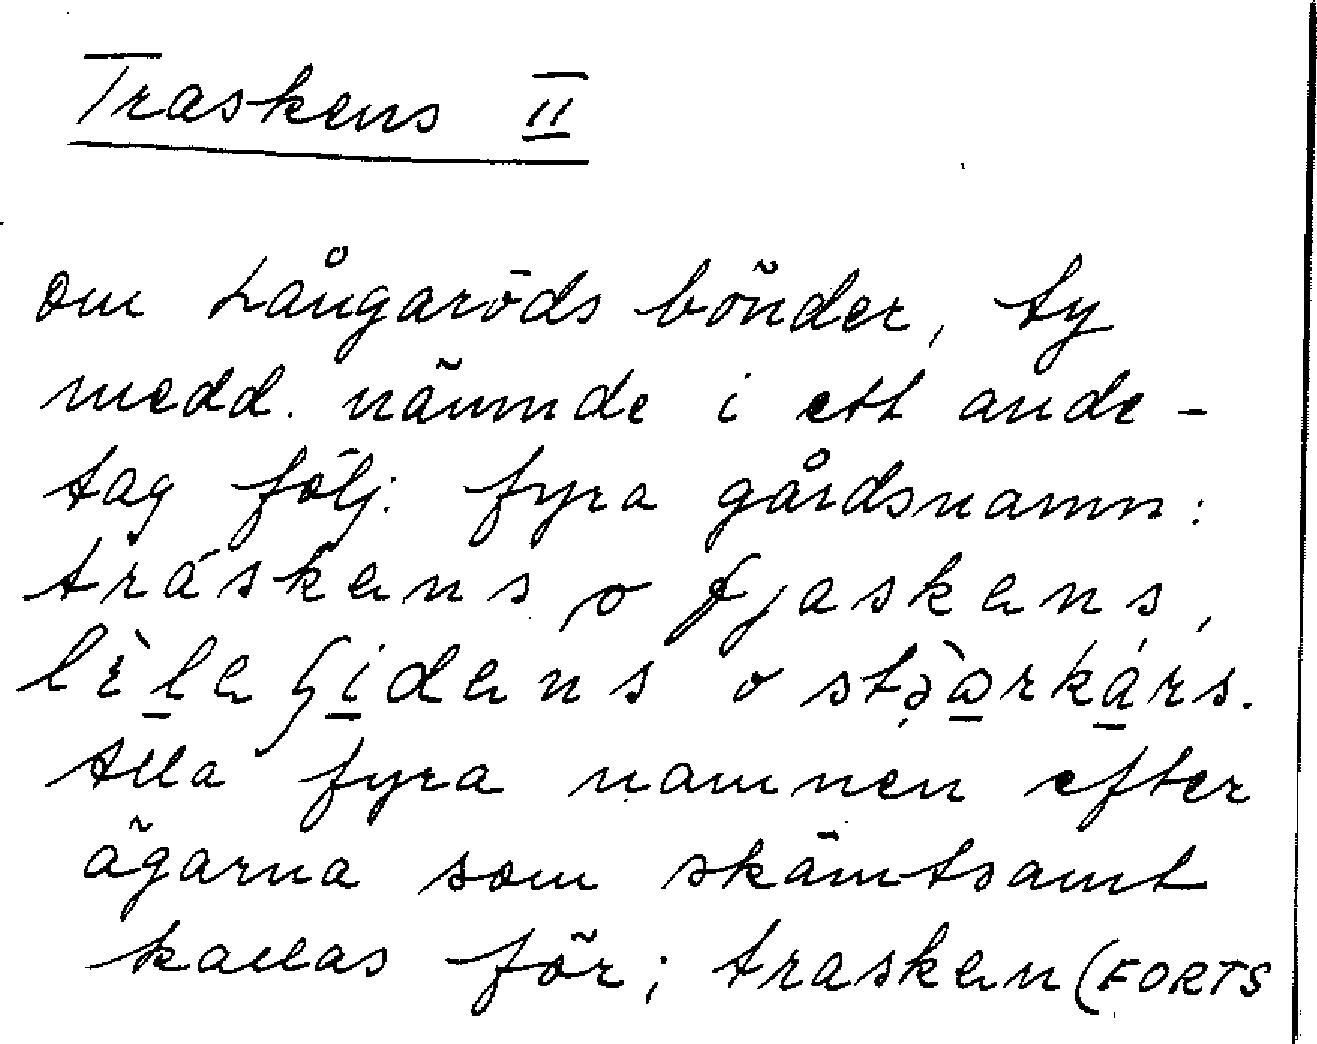 Traskens II
om Långaröds bönder, ty
medd. nämnde i ett ande-
tag följ. fyra gårdsnamn:
tráskens o fjaskens,
Alla fyra namnen efter
ägarna som skämtsamt
kallas för; trasken (FORTS